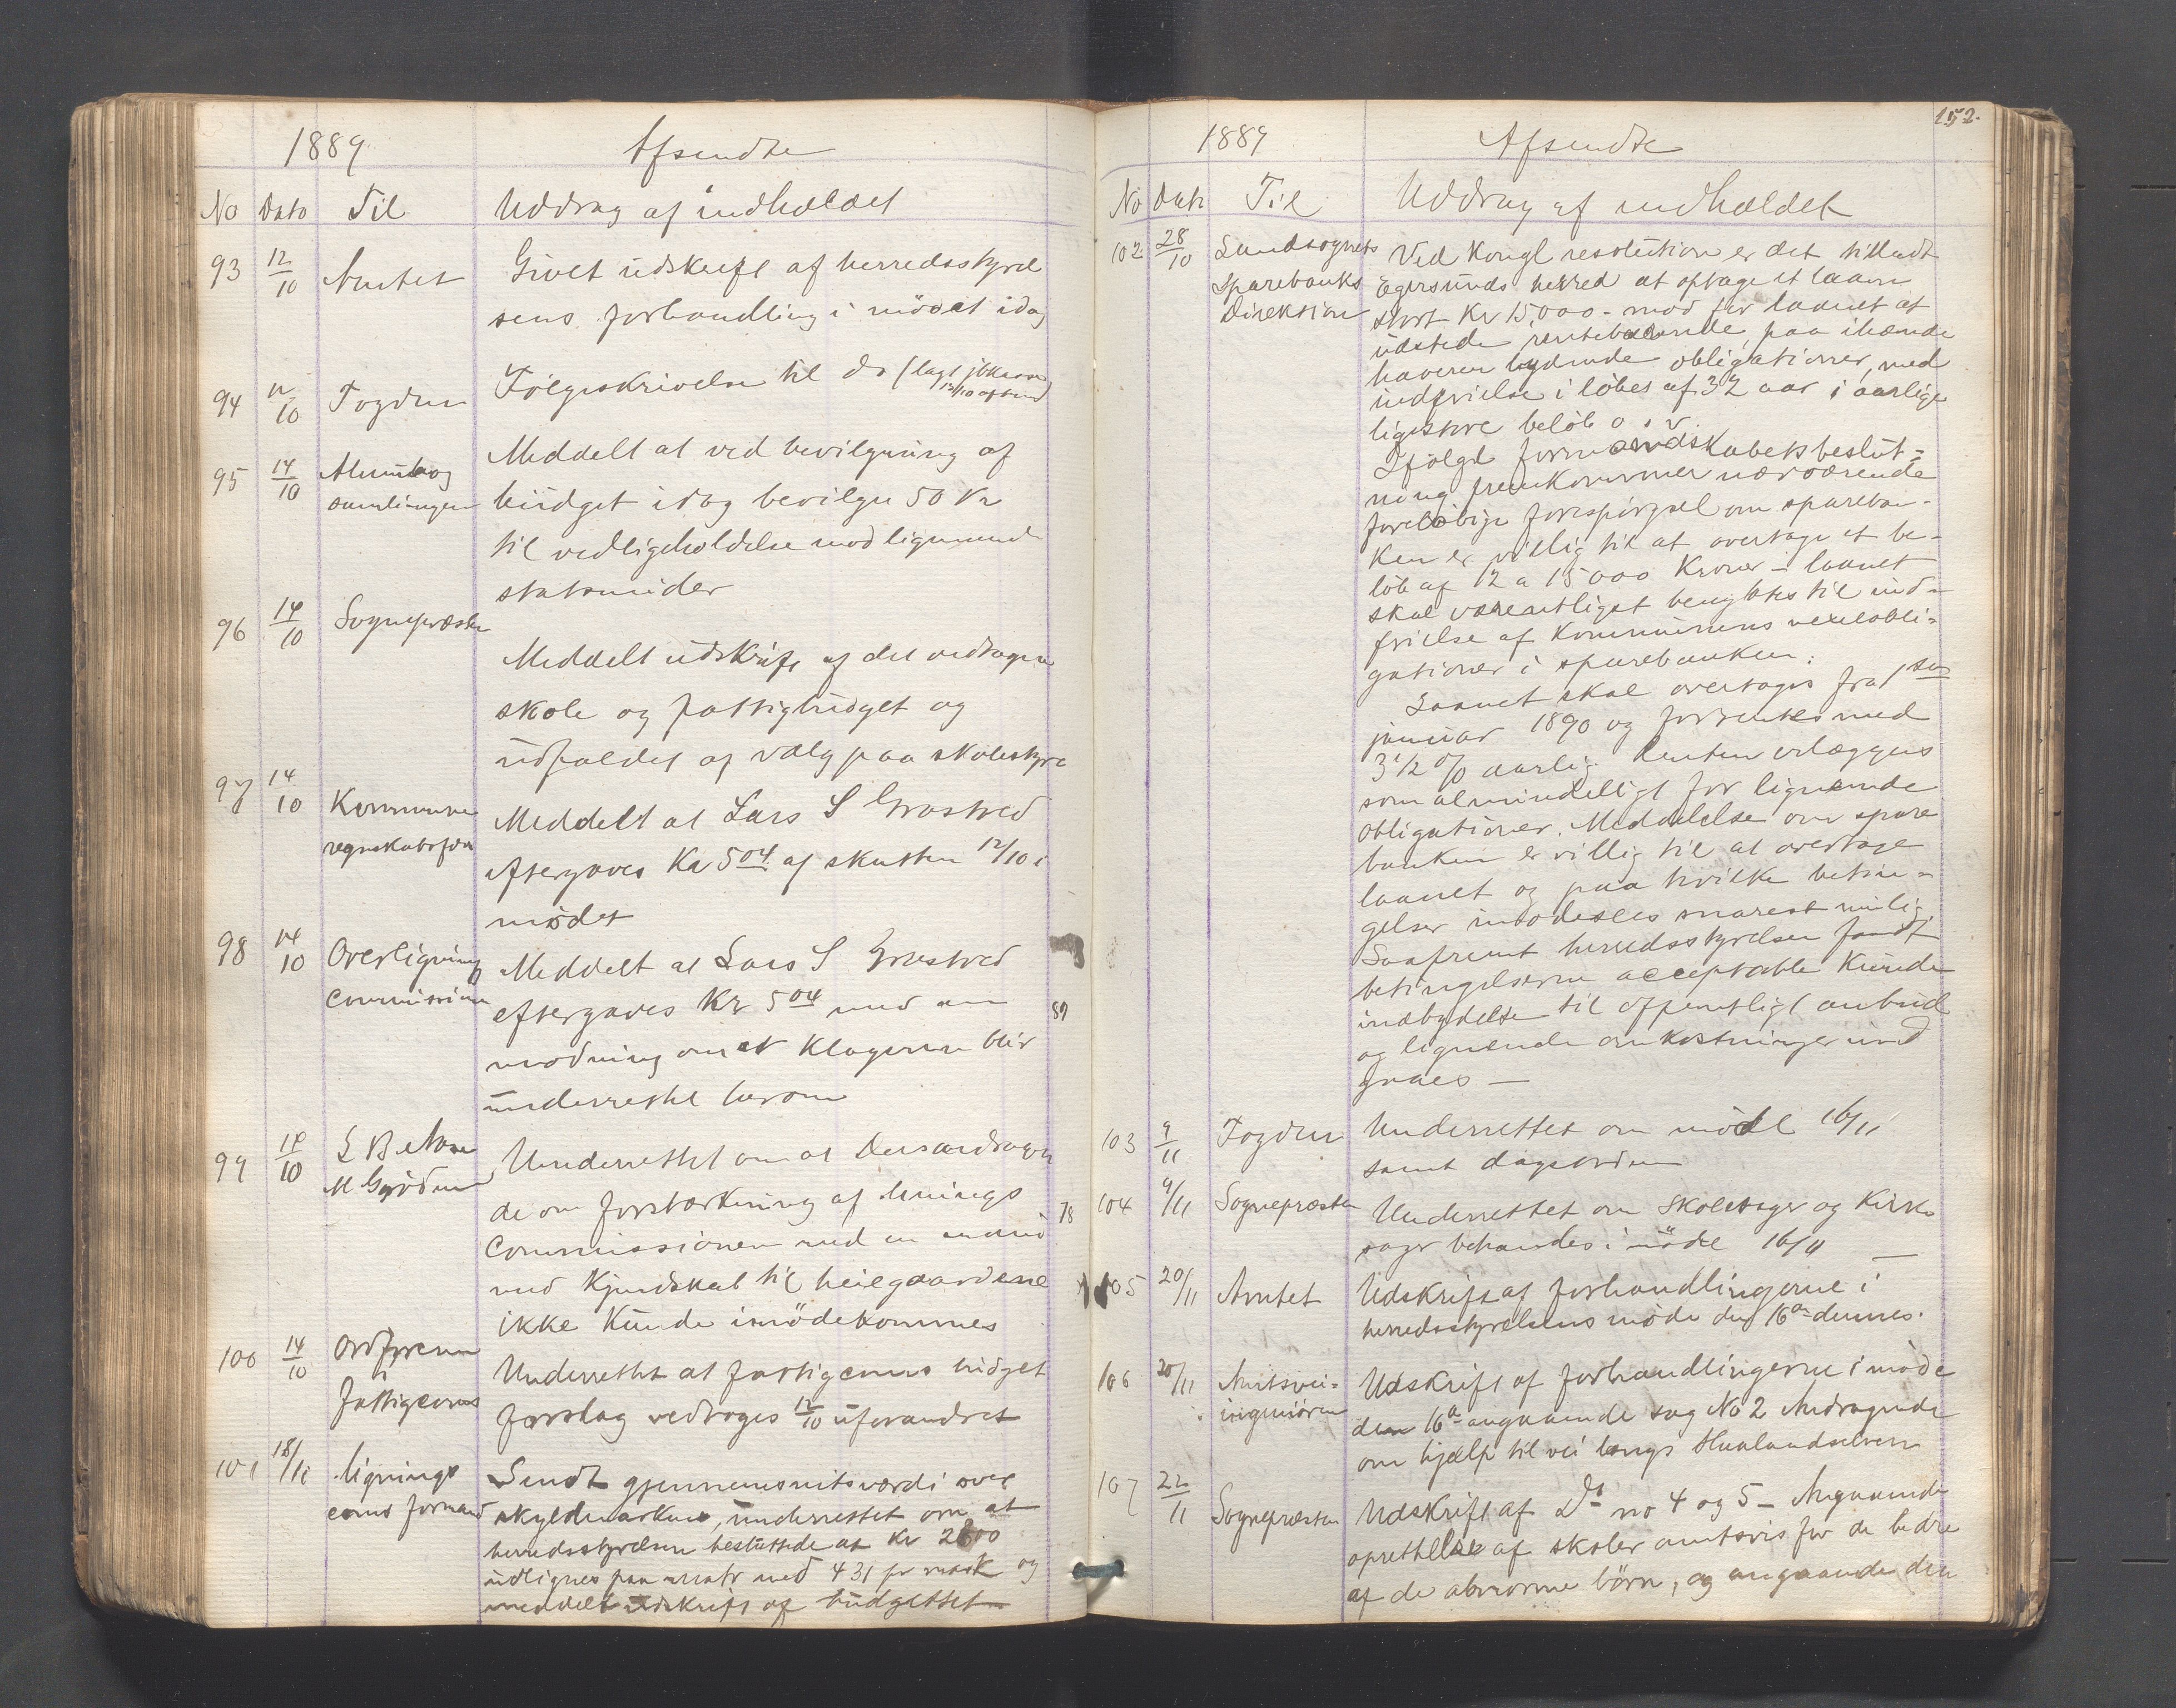 1889 Afsendte
No Dato Til Uddrag af indholdet
93 12/10 Amtet Givet udskrift af herredsstyrel
sens forhandling i mødet idag
94 12/10 Fogden Følgeskrivelse til do (lagt
12/10 afsend)
95 14/10 Almuebog
samlingen
Meddelt at ved bevilgning af
budget idag bevilges 50 Kr
til vedligeholdelse mod lignende
statsmider
96 14/10 Sognepræsten
Meddelt udskrift af det vedtagne
skole og fattigbudget og
udfaldet af valg paa skolestyre
97 14/10 Kommune
regnskabsfør
Meddelt at Lars S
eftergaves Kr 504 af skatten 12/10 i
mødet
98 14/10 Overligning
Commission
Meddelt at Lars S
eftergaves Kr 504 med an
modning om at klageren blir
underrettet herom
89
99 14/10
Underrettet om at
de om forstærkning af lignings
Commissionen med en mand
med Kjendskab til heiegaardene
ikke Kunde imødekommes
78
100 14/10 Ordføreren
i
fattigcoms
Underrettet at fattigcoms budget
forslag vedtoges 12/10 uforandret
101 18/10 Lignings
coms formand
Sendt gjennemsnitsværdi over
skyldmarken, underrettet om at
herredsstyrelsen besluttede at Kr 2800
udlignes paa matr med 431 pr mark og
meddelt udskrift af budgettet
152.
1889 Afsendte
No Dato Til Uddrag af indholdet
102 28/10 Landsognets
Sparebanks
Direktion
Ved Kongl resolution er det tilladt
Egersunds herred at optage et laan
stort Kr 15,000 - mod for laanet at
udstede rentebærende, paa ihænde
haveren lydende obligationer, med
indfrielse i løbet af 32 aar i aarlige
ligestore beløb o. s. v.
Ifølge formandskabets beslut-
ning fremkommer nærværende
foreløbige forespørgsel om spareban-
ken er villig til at overtage et be-
løb af 12 a 15000 Kroner - laanet
skal væsentligst benyttes til ind-
frielse af Kommunens vexelobli-
gationer i sparebanken.
Laanet skal overtages fra 1ste
januar 1890 og forrentes med
3 1/2 % aarlig. Renten erlægges
som almindeligt for lignende
obligationer. Meddelelse om spare
banken er villig til at overtage
laanet og paa hvilke betin-
gelser imødesees snarest mulig.
Saafremt herredsstyrelsen fandt
betingelserne acceptable kunde
indbydelse til offentligt anbud
og lignende omkostninger und
gaaes -
103 9/11 Fogden Underrettet om møde 16/11
samt dagsorden
104 9/11 Sognepræsten Underrettet om Skolesager og Kirke
sager behandles i møde 16/11 -
105 20/11 Amtet Udskrift af forhandlingerne i
herredsstyrelsens møde den 16de dennes.
106 20/11 Amtsvei-
ingeniøren
Udskrift af forhandlingerne i møde
den 16de angaaende sag No 2 Andragende
om hjælp til vei langs
107 22/11 Sognepræsten Udskrift af Do no 4 og 5 - Angaaende
oprettelse af skoler amtsvis for de bedre
af de abnorme børn, og angaaende den